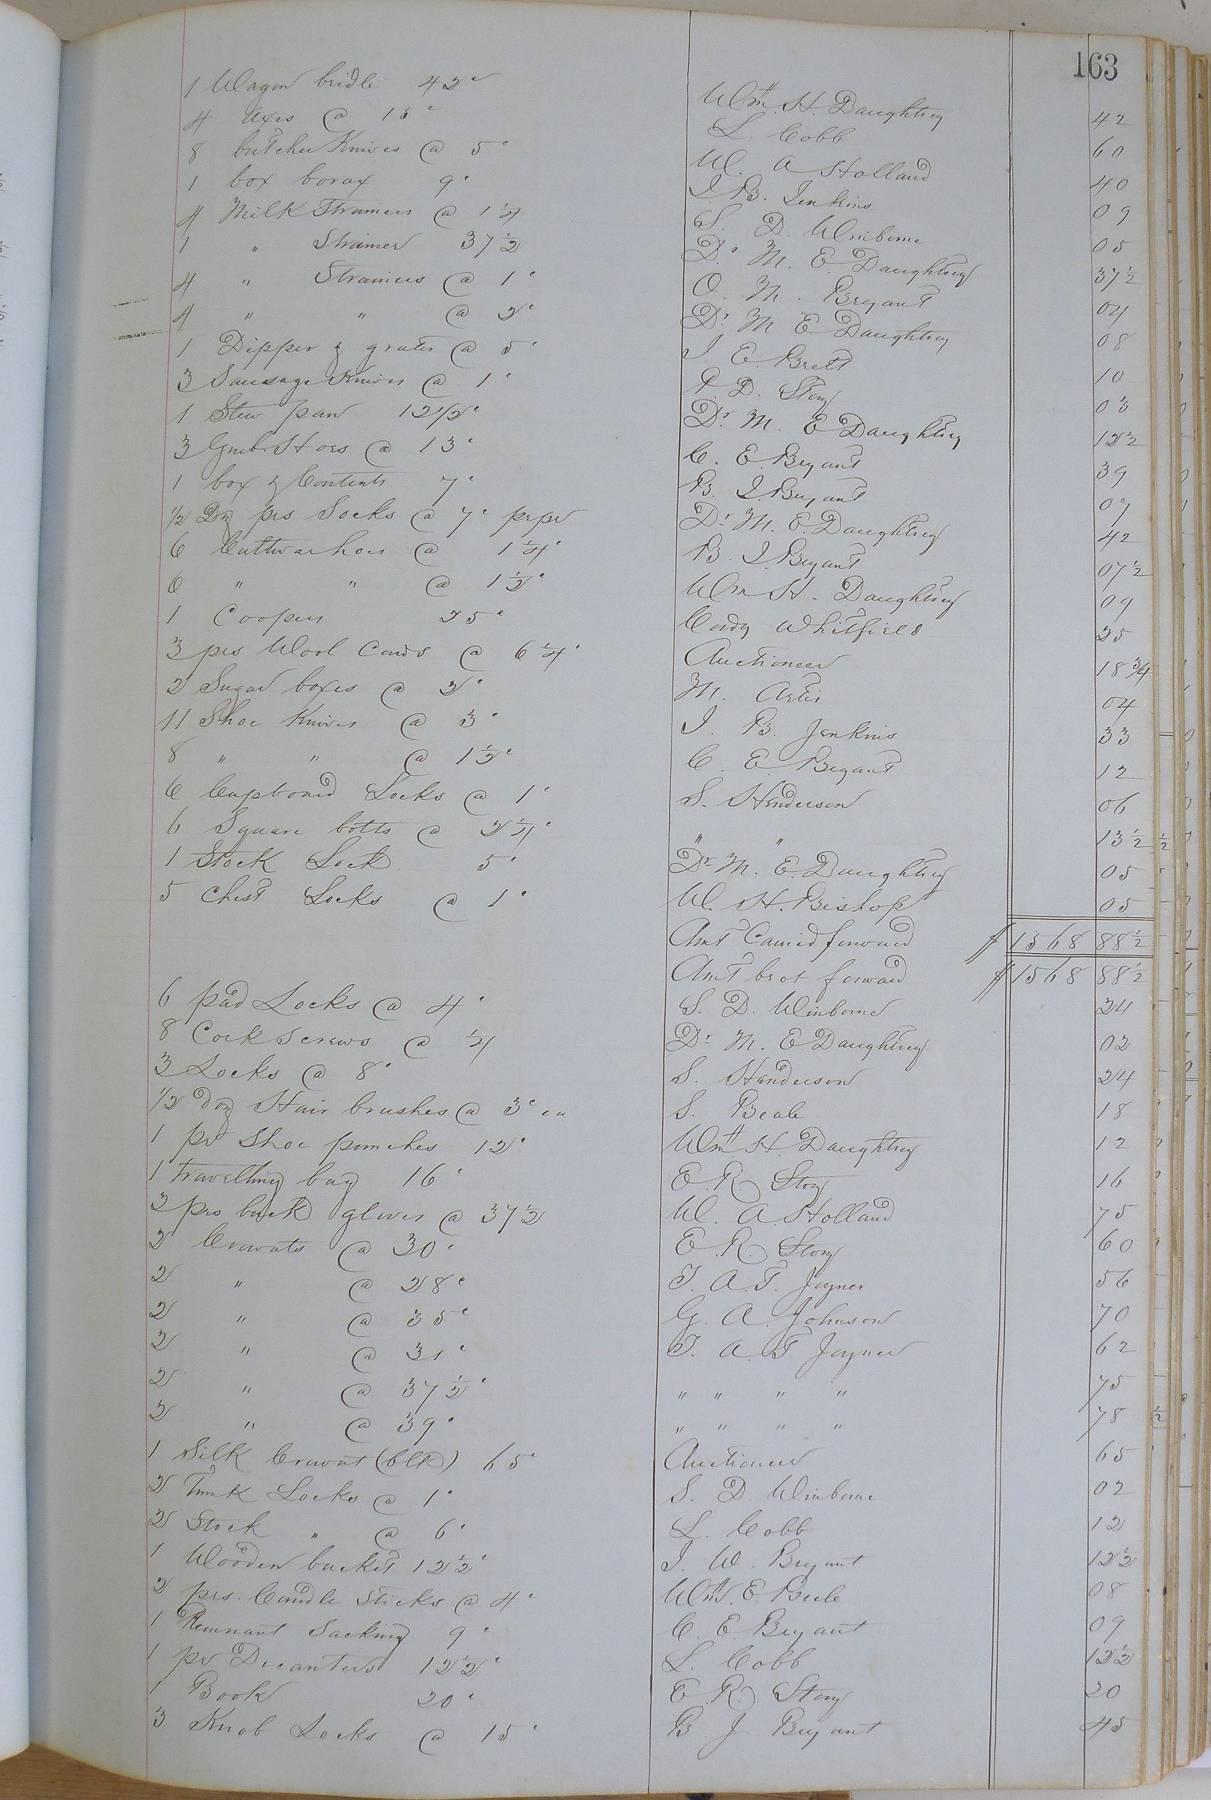 163
1 Wagon bridle 42c Wm. H. Daughtry 42
4 Axes @ 15c L. Cobb 60
8 butcher Knives @ 5c W. A Holland 40
1 box borax 9c J. B. Jenkins 09
4 Milk Strainers @ 1¼ S. D. Winborne 05
1 " Strainer 37½ Dr M. E. Daughtrey 37½
4 " Strainers @ 1c O. M. Bryant 04
4 " " @ 2c Dr M E Daughtrey 08
1 Dipper & grater @ 5c J. E. Brett 10
3 Sausage Knives @ 1c D. Story 03
1 Stew pan 12½c Dr. M. E Daughtry 12½
3 Grub Hoes @ 13c C. E. Bryant 39
1 box & Contents 7c B. J. Bryant 07
½ Doz prs Socks @ 7c pr pr Dr M. E. Daughtrey 42
6 hoes @ 1¼c B. J. Bryant 07½
6 " " @ 1½c Wm H. Daughtrey 09
1 Coopers 25c Cordy Whitfield 25
3 prs Wool Cards @ 6¼c Auctioneer 18¾
2 Sugar boxes @ 2c M. Artis 04
11 Shoe Knives @ 3c J. B. Jenkins 33
8 " " @ 1½c C. E. Bryant 12
6 Cupboard Locks @ 1c S. Henderson 06
6 Square bolts @ 2¼c " " 13½
1 Stock Lock 5c Dr M. E. Daughtrey 05
5 Chest Locks @ 1c W. H. Bishop 05
Amt Carried forward $ 1568 88½
Amt brot forward $ 1568 88½
6 pad Locks @ 4c S. D. Winborne 24
8 Cork Screws @ ¼ Dr M. E Daughtrey 02
3 Locks @ 8c S. Henderson 24
½ Doz Hair brushes @ 3c ea S. Beale 18
1 pr Shoe pinchers 12c Wm H. Daughtry 12
1 travelling bag 16c E. R. Story 16
2 prs buck gloves @ 37½ W. A. Holland 75
2 Cravats @ 30c E. R. Story 60
2 " @ 28c T. A. T. Joyner 56
2 " @ 35c G. A. Johnson 70
2 " @ 31c T. A. T. Joyner 62
2 " @ 37½c " " " " 75
2 " @ 39c " " " " 78
1 Silk Cravat (blk) 65c Auctioneer 65
2 Trunk Locks @ 1c S. D. Winborne 02
2 Stock " @ 6c L. Cobb 12
1 Wooden bucket 12½c J. W. Bryant 12½
2 prs. Candle Sticks @ 4c Wm. E. Beale 08
1 Remnant Sacking 9c C. E. Bryant 09
1 pr Decanters 12½c L. Cobb 12½
1 Book 20c E. R. Story 20
3 Knob Locks @ 15c B. J. Bryant 45